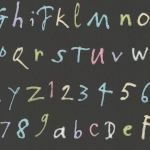 G h i F k l m n o
P Q R S T U V W
x y z 1 2 3 4 5 6
7 8 9 a b c D e F